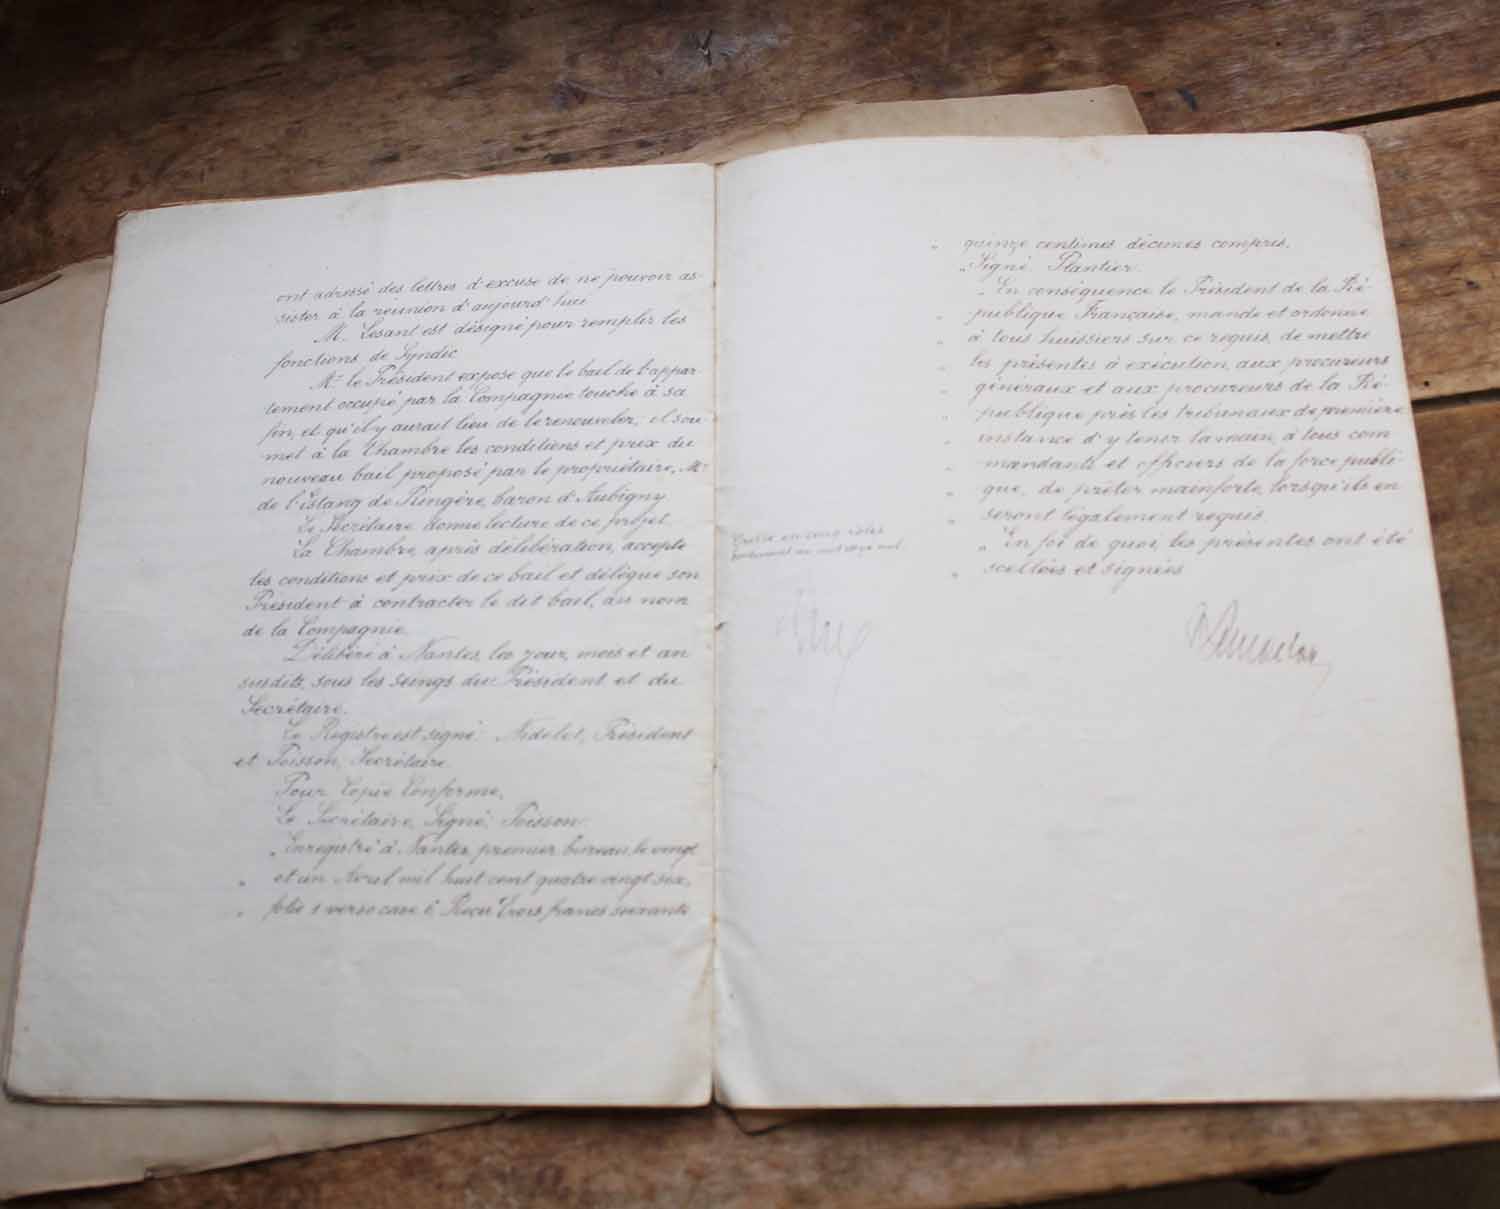 ont adressé des lettres d'excuse de ne pouvoir as-
sister à la réunion d'aujourd'hui
M. Lesant est désigné pour remplir les
fonctions de Syndic
Mr le Président expose que le bail de l'appar-
tement occupé par la Compagnie touche à sa
fin, et qu'il y aurait lieu de le renouveler, il sou-
met à la Chambre les conditions et prix du
nouveau bail proposé par le propriétaire, Mr
de l'Estang de Ringère, baron d'Aubigny
Le Secrétaire donne lecture de ce projet.
La Chambre, après délibération, accepte
les conditions et prix de ce bail et délègue son
Président à contracter le dit bail, au nom
de la Compagnie.
Délibéré à Nantes, les jour, mois et an
susdits, sous les seings du Président et du
Secrétaire.
Le Registre est signé: Nidelet, Président
et Poisson, Secrétaire.
Pour Copie Conforme,
Le Secrétaire, Signé: Poisson.
„ Enregistré à Nantes, premier bureau, le vingt
„ et un Avril mil huit cent quatre vingt six,
„ folio 1 verso case 6. Reçu Trois francs soixante
„ quinze centimes décimes compris.
„ Signé Plantier.
„ En conséquence le Président de la Ré-
„ publique Française, mande et ordonne
„ à tous huissiers sur ce requis, de mettre
„ les présentes à exécution, aux procureurs
„ généraux et aux procureurs de la Ré-
„ publique près les tribunaux de première
„ instance d'y tenir la main, à tous com
„ mandants et officiers de la force publi-
„ que, de prêter mainforte, lorsqu'ils en
„ seront légalement requis.
„ En foi de quoi, les présentes ont été
„ scellées et signées